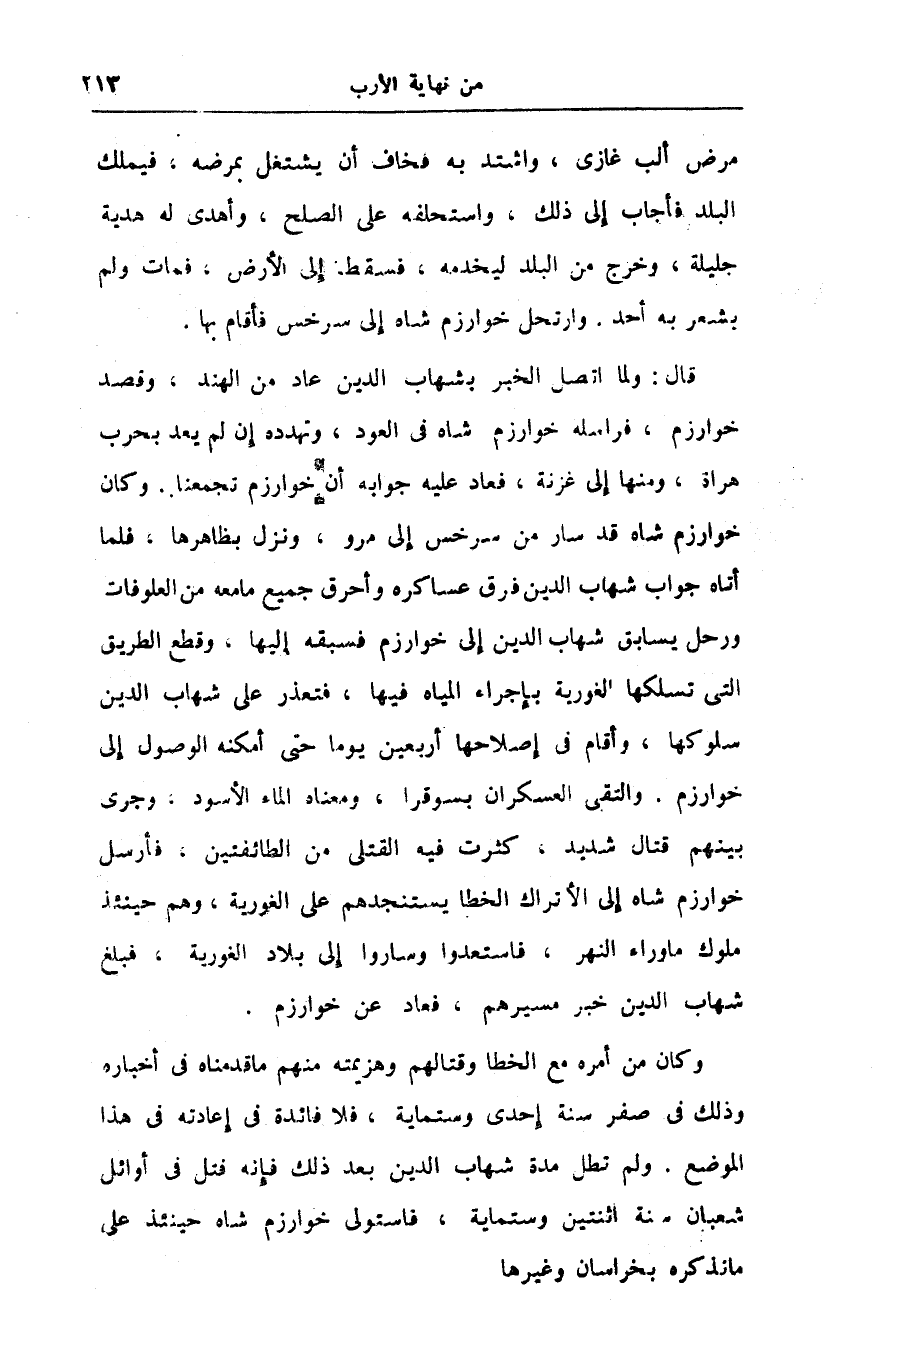 من نهاية الأرب ٢١٣
مرض ألب غازى ، واشتد به فخاف أن يشتغل بمرضه ، فيملك
البلد فأجاب إلى ذلك ، واستحلفه على الصلح ، وأهدى له هدية
جليلة ، وخرج من البلد ليخدمه ، فسقط إلى الأرض ، فمات ولم
يشعر به أحد . وارتحل خوارزم شاه إلى سرخس فأقام بها .
قال : ولما اتصل الخبر بشهاب الدين عاد من الهند ، وقصد
خوارزم ، فراسله خوارزم شاه فى العود ، وتهدده إن لم يعد بحرب
هراة ، ومنها إلى غزنة ، فعاد عليه جوابه أن خوارزم تجمعنا . وكان
خوارزم شاه قد سار من سرخس إلى مرو ، ونزل بظاهرها ، فلما
أتاه جواب شهاب الدين فرق عساكره وأحرق جميع مامعه من العلوفات
ورحل يسابق شهاب الدين إلى خوارزم فسبقه إليها ، وقطع الطريق
التى تسلكها الغورية بإجراء المياه فيها ، فتعذر على شهاب الدين
سلوكها ، وأقام فى إصلاحها أربعين يوما حتى أمكنه الوصول إلى
خوارزم . والتقى العسكران بسوقرا ، ومعناه الماء الأسود ، وجرى
بينهم قتال شديد ، كثرت فيه القتلى من الطائفتين ، فأرسل
خوارزم شاه إلى الأتراك الخطا يستنجدهم على الغورية ، وهم حينئذ
ملوك ماوراء النهر ، فاستعدوا وساروا إلى بلاد الغورية ، فبلغ
شهاب الدين خبر مسيرهم ، فعاد عن خوارزم .
وكان من أمره مع الخطا وقتالهم وهزيمته منهم ماقدمناه فى أخباره
وذلك فى صفر سنة إحدى وستماية ، فلا فائدة فى إعادته فى هذا
الموضع . ولم تطل مدة شهاب الدين بعد ذلك فإنه قتل فى أوائل
شعبان سنة اثنتين وستماية ، فاستولى خوارزم شاه حينئذ على
مانذكره بخراسان وغيرها